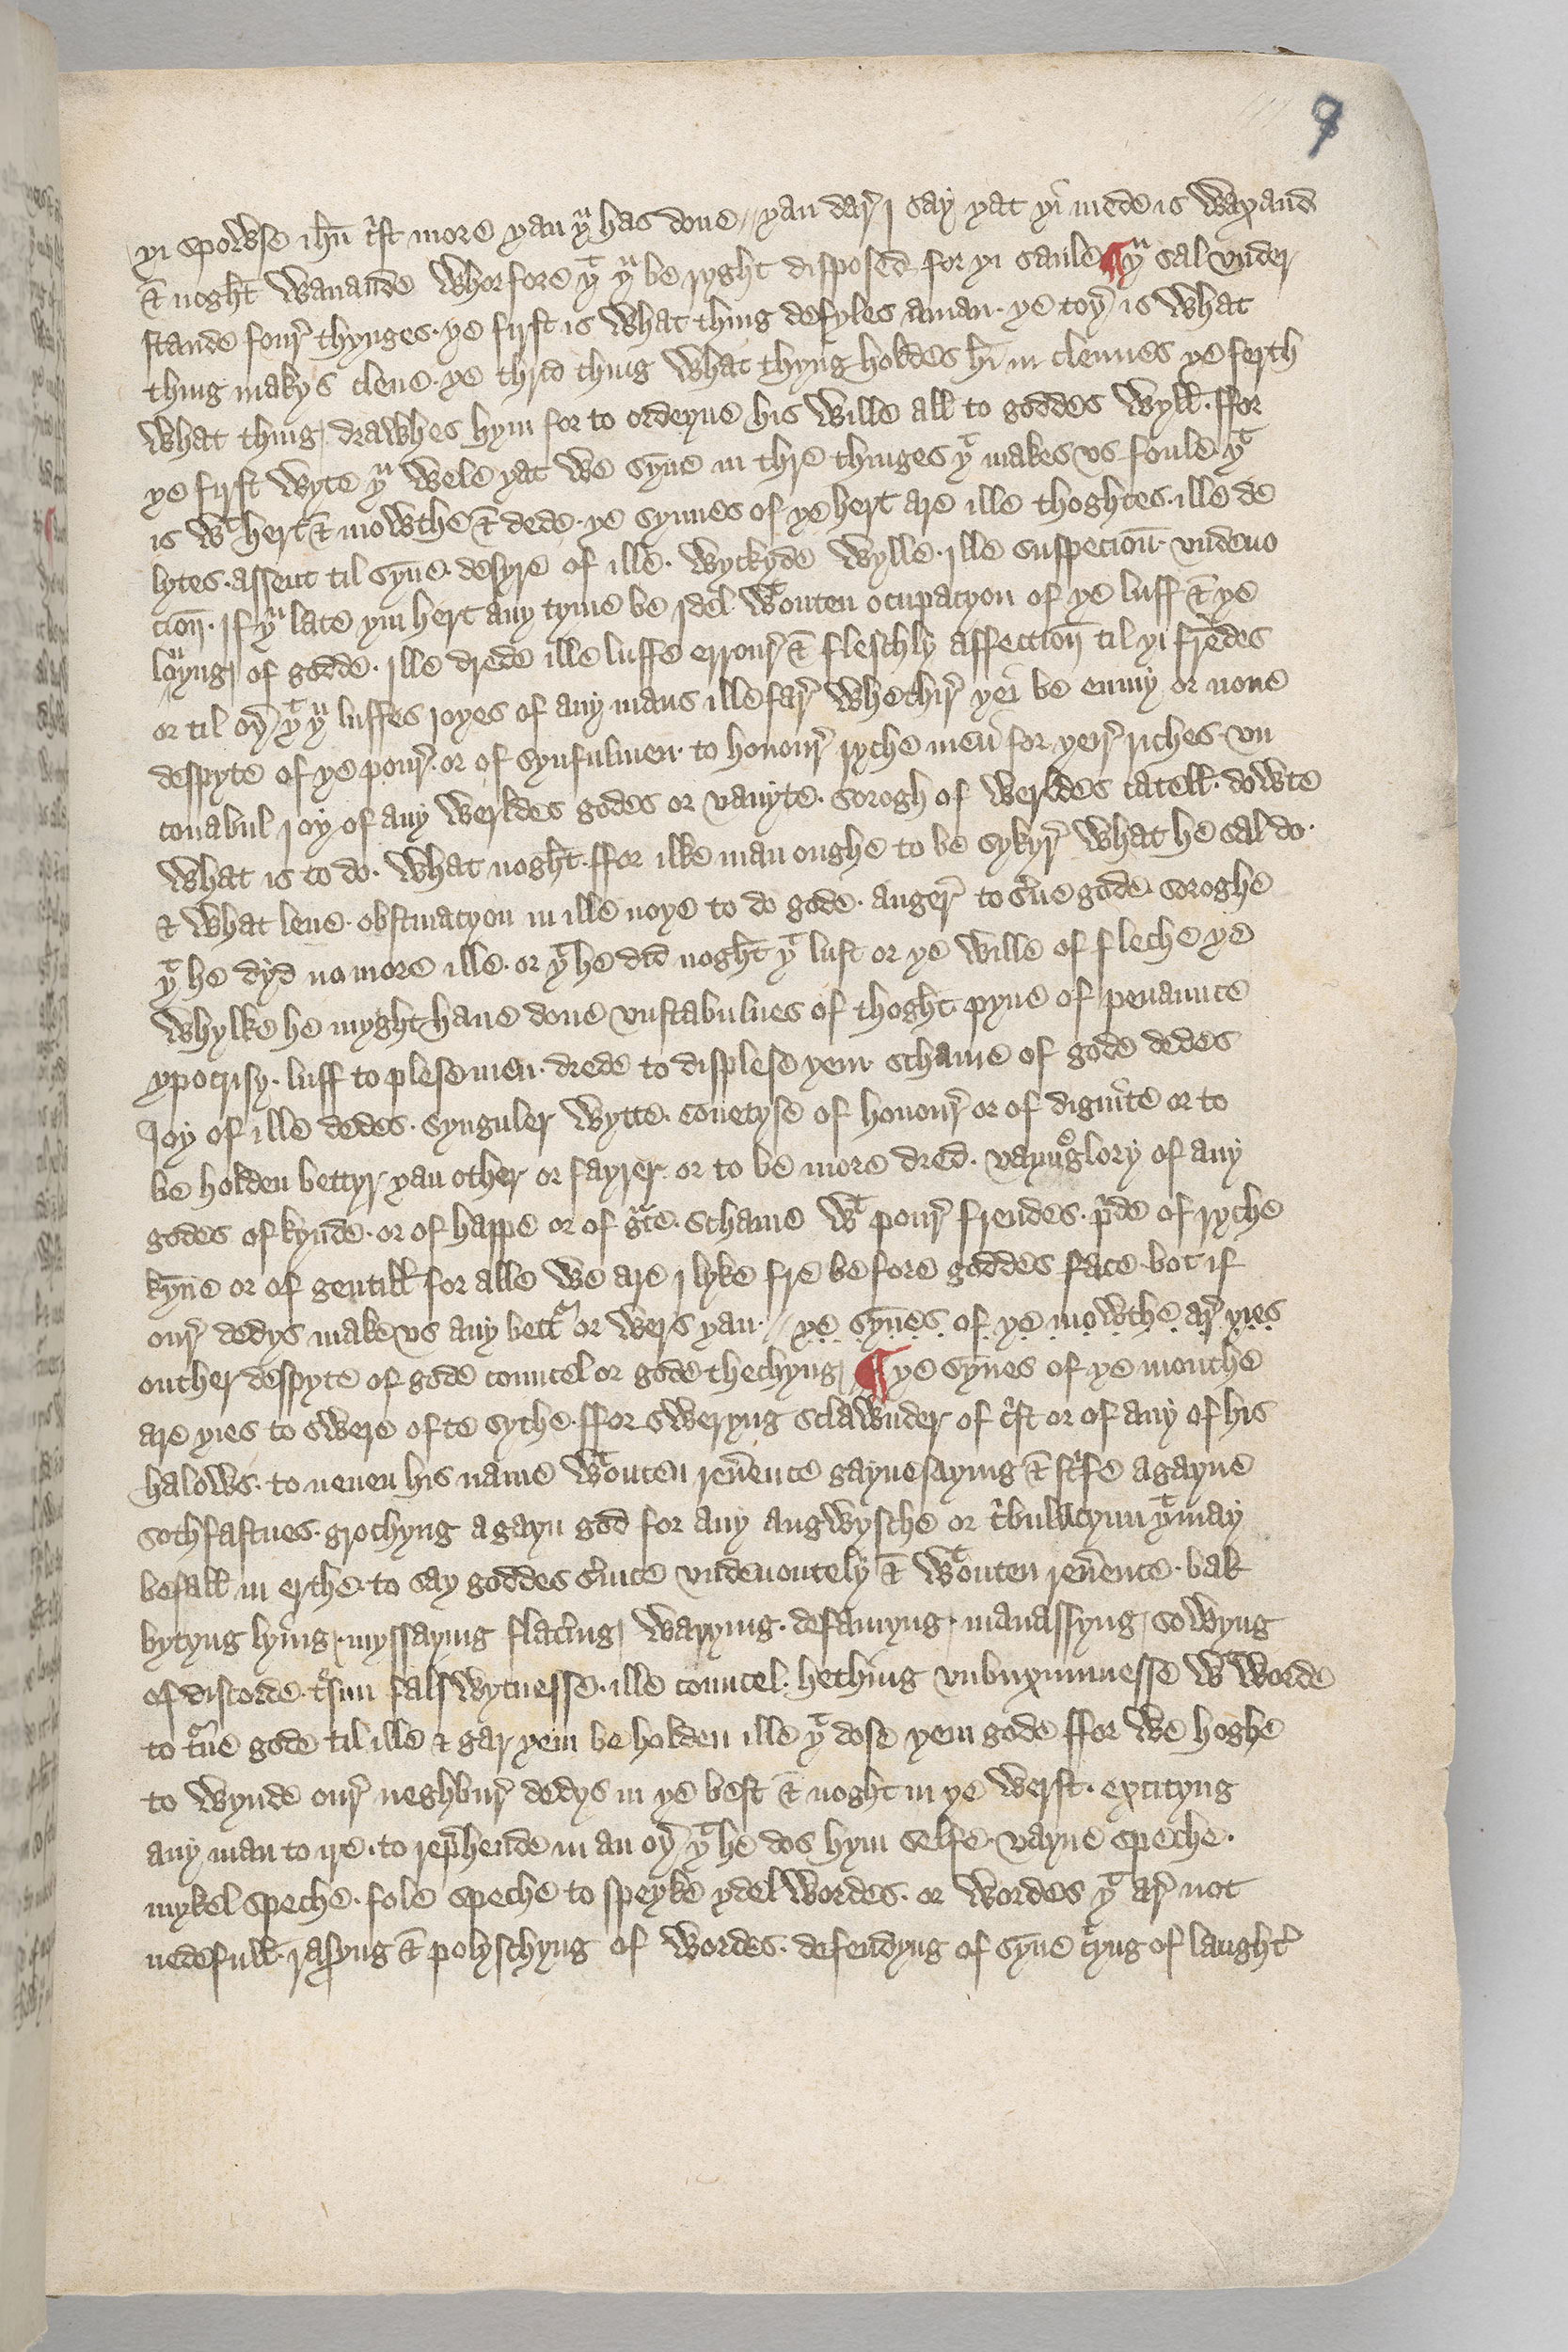 9
yi spowse ihu̅ cͥst more yan yͧ has done // yan dar I say yat yi mede is waxand
& noght wanande Whorfore yͭ yͧ be ryght disposed for yi saule ¶ yͧ sal vnder
stande four thynges · ye first is what thing defyles aman · ye toy̾ is what
thing makys clene · ye thrid thing what thyng holdes hi̅ in clennes ye ferth
what thing drawhes hym for to ordeyne his wille all to goddes wyll · ffor
ye first wyte yͧ wele yat we sy̅ne in thre thinges yͭ makes vs foule yͭ
is wͭ hert & mowthe & dede · ye synnes of ye hert are ille thoghtes · ille de
lytes · assent til sy̅ne · desyre of ille · wyckyde wylle · ille suspecion̅ · vndeuo
cion̅ · If yͧ late yin hert any tyme be idel · wͭouten ocupacyon of ye luff & ye
louyng of godde · ille drede ille luffe errour & fleschly affection̅ til yi fre̅des
or til oy̾ yͭ yͧ luffes ioyes of any mans ille far whethir yei be enmy or none
despyte of ye pour · or of synfulmen · to honour ryche men̅ for yeir riches · vn
conabul ioy of any werldes godes or vanyte · sorogh of werldes catell · dowte
what is to do · what noght · ffor ilke man oughe to be sykyr what he sal do ·
& what leue · obstinacyon in ille noye to do gode · anger to s̾ue gode · soroghe
yͭ he dyd no more ille · or yͭ he did noght yͭ lust or ye wille of fleche ye
whylke he myght haue done vnstabulnes of thoght pyne of penaunce
ypocrisy · luff to plese men · drede to displese yem · schame of gode dedes
Ioy of ille dedes · synguler wytte · couetyse of honour or of dignite or to
be holden bettyr yan other or fayrer · or to be more dred · vaynglory of any
godes of kynde · or of happe or of gͣce · schame wͭ pour frendes · pͥde of ryche
ky̅ne or of gentill for alle we are i lyke fre be fore goddes face · bot if
our dedys make vs any bett̾ or wers yan · // ye sy̅nes of ye mowthe ar yies
outher despyte of gode councel or gode thechyng ¶ ye synes of ye mouthe
are yies to swere ofte sythe · ffor sweryng sclawnder of cͥst or of any of his
halows · to neuen his name wͭouten reu̾ence gaynesaying & stͥfe agayne
sothfastnes · grochyng agayn god for any angwysche or tͥbulacyun yͭ may
befall in erthe · to say goddes s̾uice vndeuoutely & wͭouten reu̾ence · bak
bytyng lying · myssaying flat̾ing warying · defamyng · manassyng sowyng
of discorde · tͤsun fals wytnesse · ille councel · hething vnbuxumnesse wͭ worde
to tͧne gode til ille & gar yem be holden ille yͭ dose yem gode ffor we hoghe
to wynde our neghbur dedys in ye best & noght in ye werst · excityng
any man to ire · to rep̾hende in an oy̾ yͭ he dos hym selfe · vayne speche ·
mykel speche · fole speche to speyke ydel wordes · or wordes yͭ ar not
nedefull · rasyng & polyschyng of wordes · defendyng of sy̅ne cͥyng of laught̾